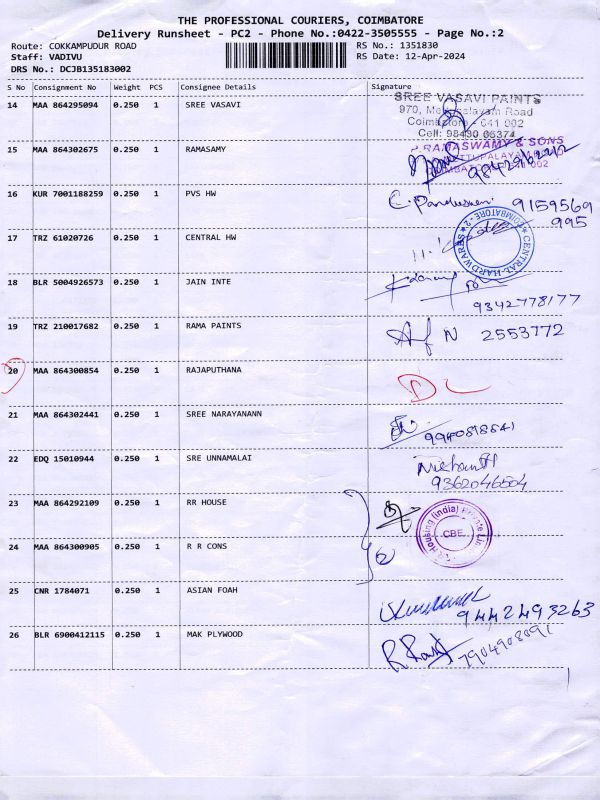 THE PROFESSIONAL COURIERS, COIMBATORE
Delivery Runsheet - PC2 - Phone No.:0422-3505555 - Page No.:2
Route: COKKAMPUDUR ROAD
RS No.: 1351830
Staff: VADIVU
RS Date: 12-Apr-2024
DRS No.: DCJB135183002
S No Consignment No Weight PCS Consignee Details Signature
14 MAA 864295094 0.250 1 SREE VASAVI
SREE VASAVI PAINTS
970, Road
Coimbatore - 641 002
Cell: 98430 06374
15 MAA 864302675 0.250 1 RAMASAMY
RAMASWAMY & SONS
16 KUR 7001188259 0.250 1 PVS HW
9159569
995
17 TRZ 61020726 0.250 1 CENTRAL HW
CENTRAL HARDWARES COIMBATORE - 2
18 BLR 5004926573 0.250 1 JAIN INTE
9342778177
19 TRZ 210017682 0.250 1 RAMA PAINTS
N 2553772
20 MAA 864300854 0.250 1 RAJAPUTHANA
DL
21 MAA 864302441 0.250 1 SREE NARAYANANN
22 EDQ 15010944 0.250 1 SRE UNNAMALAI
9362046504
23 MAA 864292109 0.250 1 RR HOUSE
Housing (India) Private
CBE
24 MAA 864300905 0.250 1 R R CONS
25 CNR 1784071 0.250 1 ASIAN FOAH
9442493263
26 BLR 6900412115 0.250 1 MAK PLYWOOD
7904908091